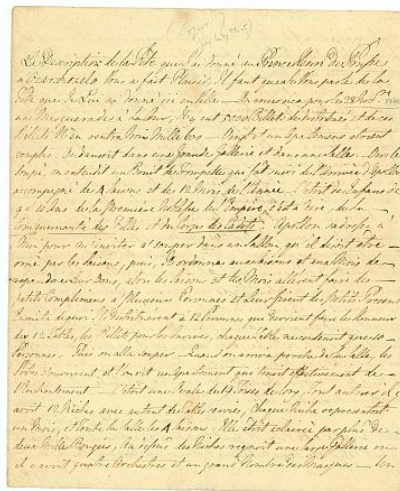 La Description de la Fête que j'ai donné au Prince Henri de Prusse
à Czarskoselo Vous a fait Plaisir. Il faut que je Vous parle de la
Fête que je Lui ai donné ici en Ville — On annonça pour le 28
une Masquerade à la Cour, Il y eut Billets distribués et de ces
Billets Il en rentra trois mille — Vingt et un Apartemens étoient
remplis. On dansoit dans une grande Gallerie et dans une Salle. Vers le
Soupé, on entendit un Bruit de Trompettes qui fait suivre de l'arrivée d'Apollon
accompagné des 4 Saisons et des 12 Mois de l'Année — C'étoit des Enfans de
10 ans de la première Noblesse de l'Empire, c'est à dire, de la
Communauté des Filles et du Corps des Cadets. Apollon
Moi pour m'inviter à souper dans un Sallon, qu'il disoit être
orné par les Saisons, puis, Il ordonna aux Saisons et aux Mois de
Leurs Dons, alors les Saisons et les Mois allèrent faire de
petits Complimens à Plusieurs Personnes et Leur firent des petits Présens
à 12 Personnes qui devoient faire les honneurs
des 12 Tables, les Billets pour les chaque Table
Personnes — Puis on alla souper — Quand on arriva proche de la Salle, les
Portes s'ouvrirent et l'on vit un Apartement qui tenoit effectivement de
l'Enchantement — C'étoit une Ovale de 19 Toises de long, Tout autour il y
avoit 12 Niches avec autant de Tables, Chaque Niche représentoit
un Mois, et toute la Salle les 4 Saisons. Elle étoit éclairée par plus de
deux Mille Bougies, Au dessus des Niches regnoit une large Gallerie où
il y avoit quatre Orchestres et un grand Nombre de Masques — Un